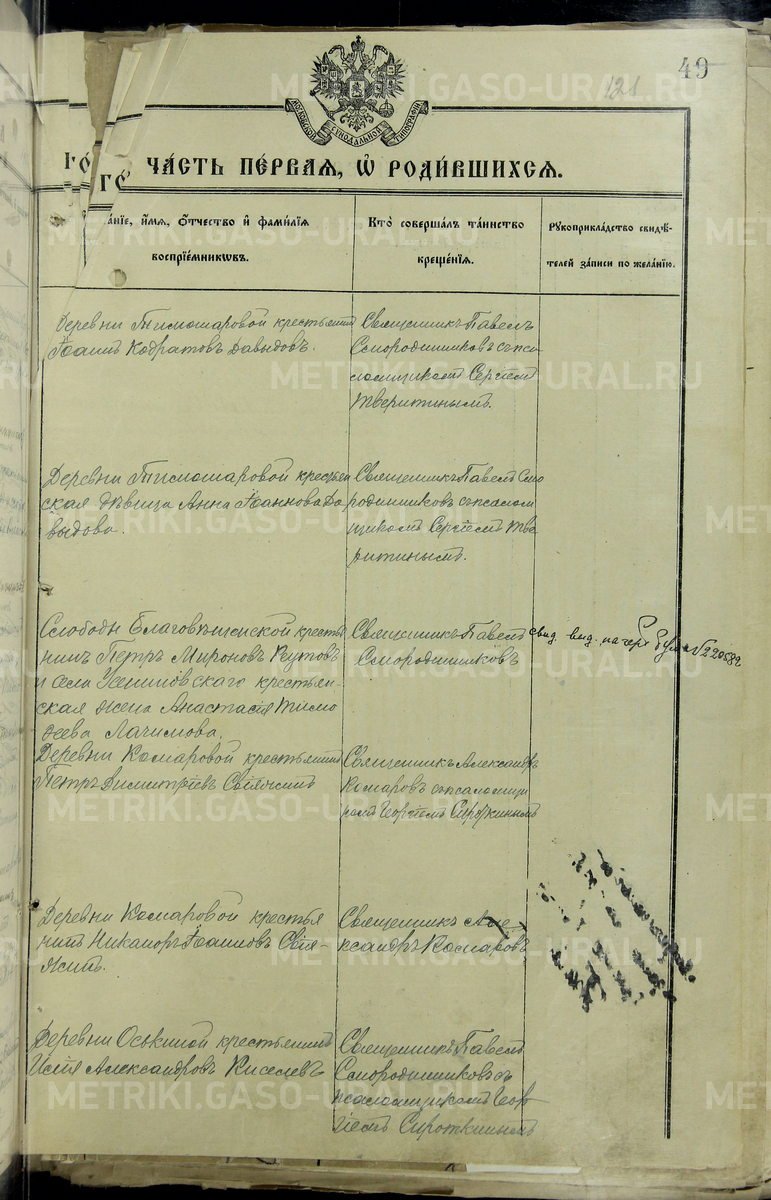 49
121
МОСКОВСКОЙ СѴНОДАЛЬНОЙ ТИПОГРАФІИ
ЧА́СТЬ ПЕ́РВАЯ, Ѽ РОДИ́ВШИХСЯ.
а́нїе, и҆́мя, ѻ҆́тчество и҆ фами́лїя
воспрїе́мникѡвъ.
Кто̀ соверша́лъ та́инство
креще́нїя.
Рꙋкоприкла́дство свидѣ́-
телей за́писи по жела́нїю.
Деревни Тимошаровой крестьянинъ
Іоаннъ Кодратовъ Давыдовъ.
Священникъ Павелъ
Смородинниковъ съ пса-
ломщикомъ Сергіемъ
Тверитинымъ.
Деревни Тимошаровой крестьян
ская дѣвица Анна Іоаннова Да
выдова.
Священникъ Павелъ Смо
родинниковъ съ псалом
щикомъ Сергіемъ Тве
ритинымъ.
Слободы Благовѣщенской кресть
нинъ Петръ Мироновъ
и села крестьян-
ская жена Анастасія Тимо
феева Лачимова.
Священникъ Павелъ
Смородинниковъ
свид. выд. на герб бум №220582
Деревни Комаровой крестьянинъ
Петръ Димитріевъ
Священникъ Александръ
Комаровъ съ псаломщи
комъ Георгіемъ Сироткинымъ
Деревни Комаровой крестья
нинъ Никаноръ Іоанновъ
Священникъ Але
ксандръ Комаровъ
Деревни Оськиной крестьянинъ
Илія Александровъ Киселевъ
Священникъ Павелъ
Смородинниковъ съ
псаломщикомъ Геор
гіемъ Сироткинымъ
METRIKI.GASO-URAL.RU